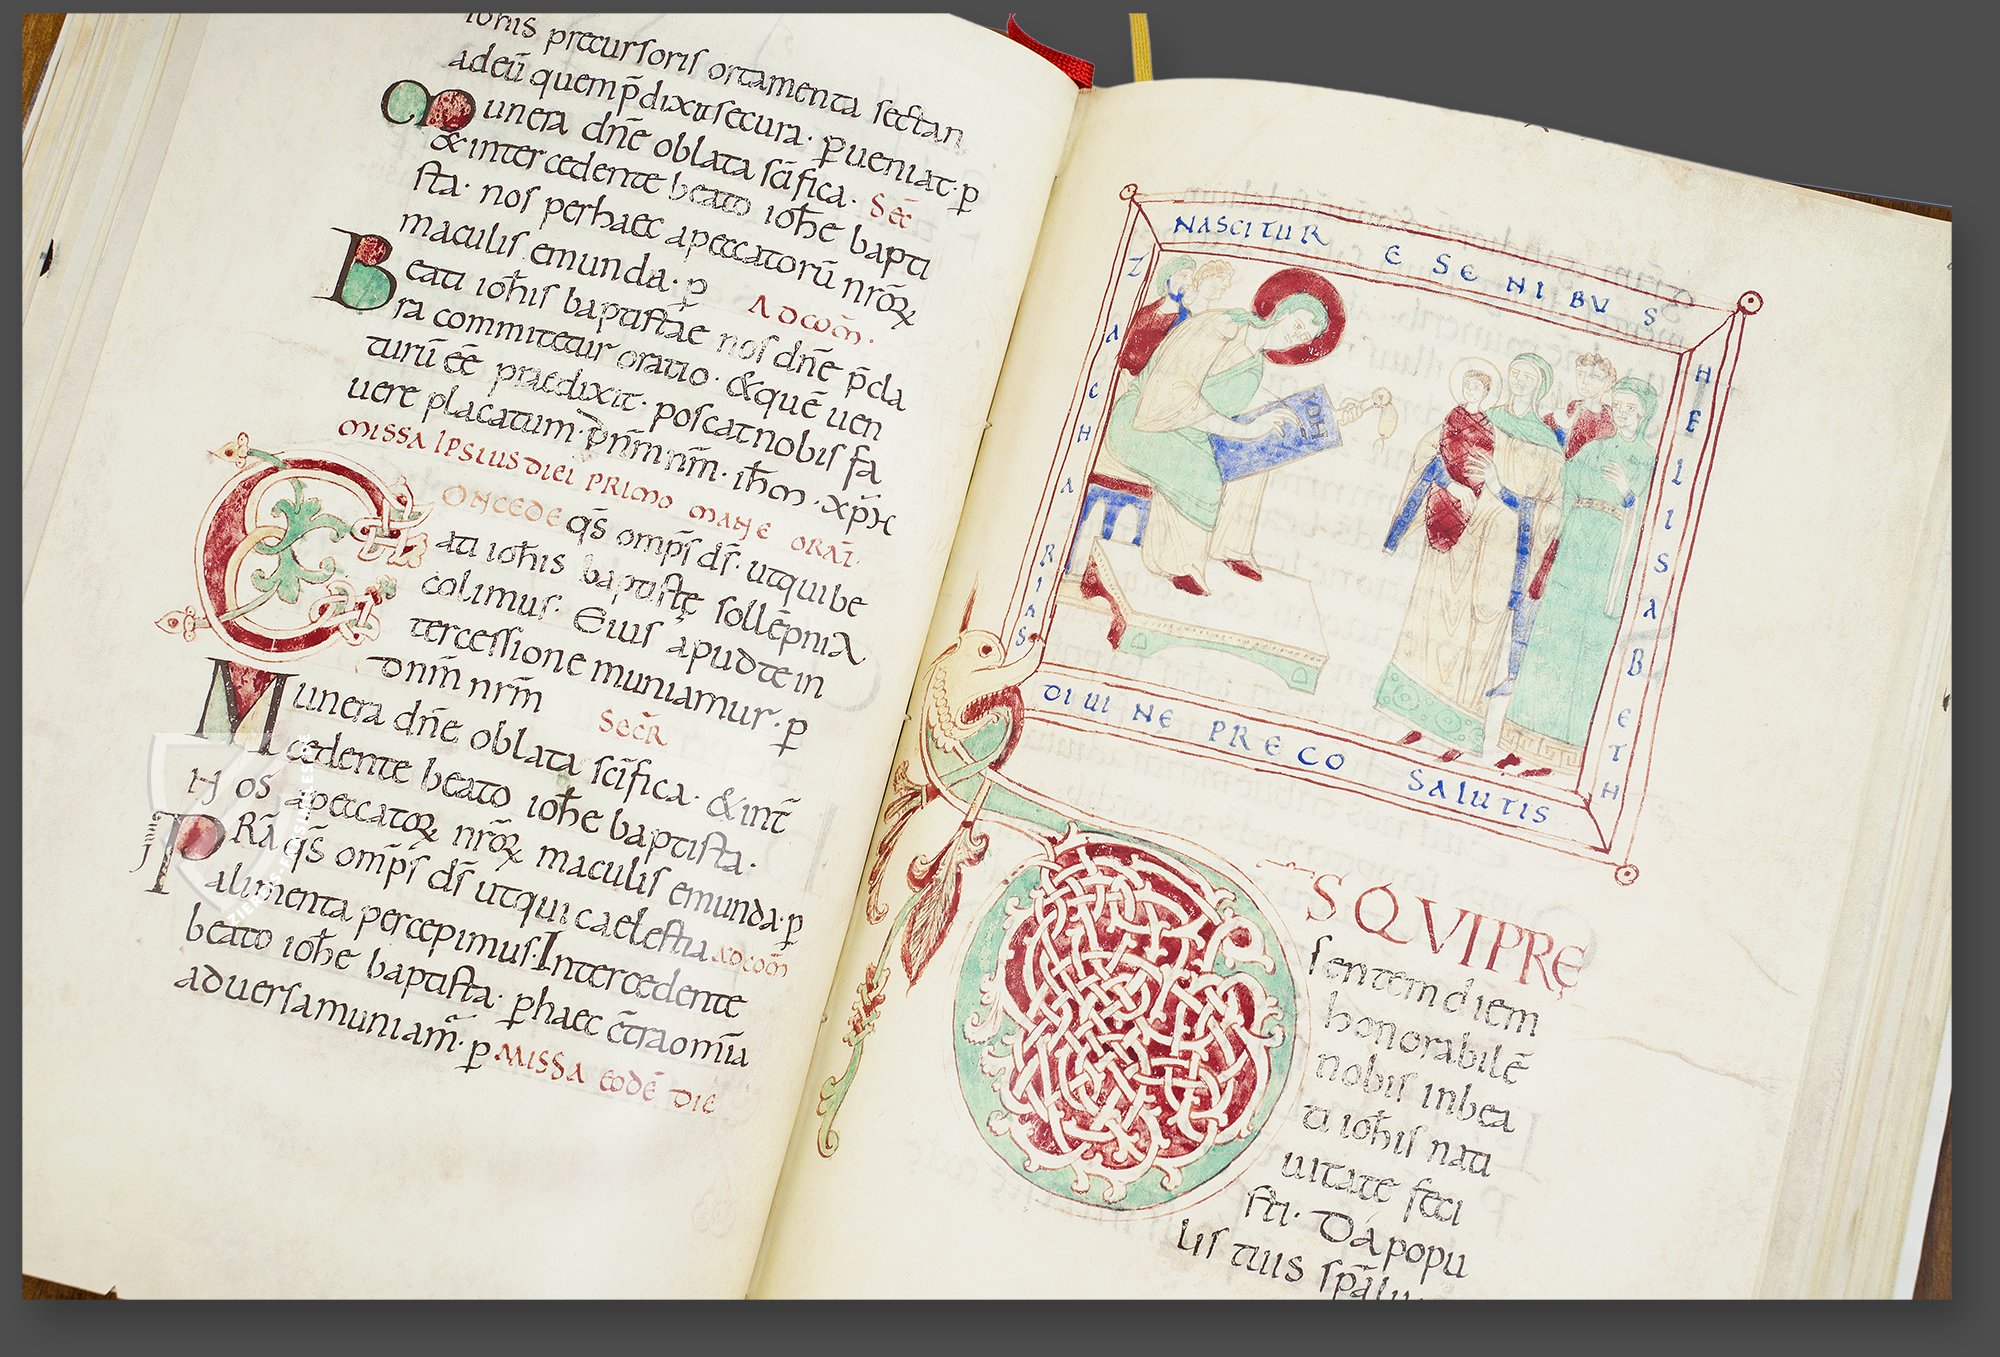 iohis precursoris ortamenta sectan
adeū quem p̄dixit secura· p̱ueniat· p̱
Munera dn̄e oblata sc̄ifica· Secr̄
& intercedente beato ioh̄e bapti
sta· nos perhaec apeccatorū nr̄oꝝ
maculis emunda· p̱ Adcom̄·
Beati ioh̄is baptistae nos dn̄e p̄cla
ra commitetur oratio· & quē uen
turū eē praedixit· poscat nobis fa
uere placatum· dnm̄ nrm̄· ihm̄· xp̄m
MISSA IPSIUS DIEI PRIMO MANE ORAT̄·
CONCEDE qs̄ omp̄s ds̄· utqui be
ati ioh̄is baptistę sollēpnia
colimus· Eius apud te in
tercessione muniamur· p̱
dnm̄ nrm̄ Secr̄
Munera dn̄e oblata sc̄ifica· & int̄
cedente beato ioh̄e baptista·
NOS apeccatoꝝ nr̄oꝝ maculis emunda· p̱
PRĀ qs̄ omp̄s ds̄ utqui caelestia adcom̄
alimenta percepimus· Intercedente
beato ioh̄e baptista· p̱haec c̄tra om̄ia
aduersa muniam̄· p̱ MISSA EODĒ DIE
NASCITUR E SENIBUS
ZACHARIAS
HELISABETH
DIUINĘ PRECO SALUTIS
DS QVI PRĘ
sentem diem
honorabilē
nobis in bea
ti ioh̄is nati
uitate feci
sti· Da popu
lis tuis